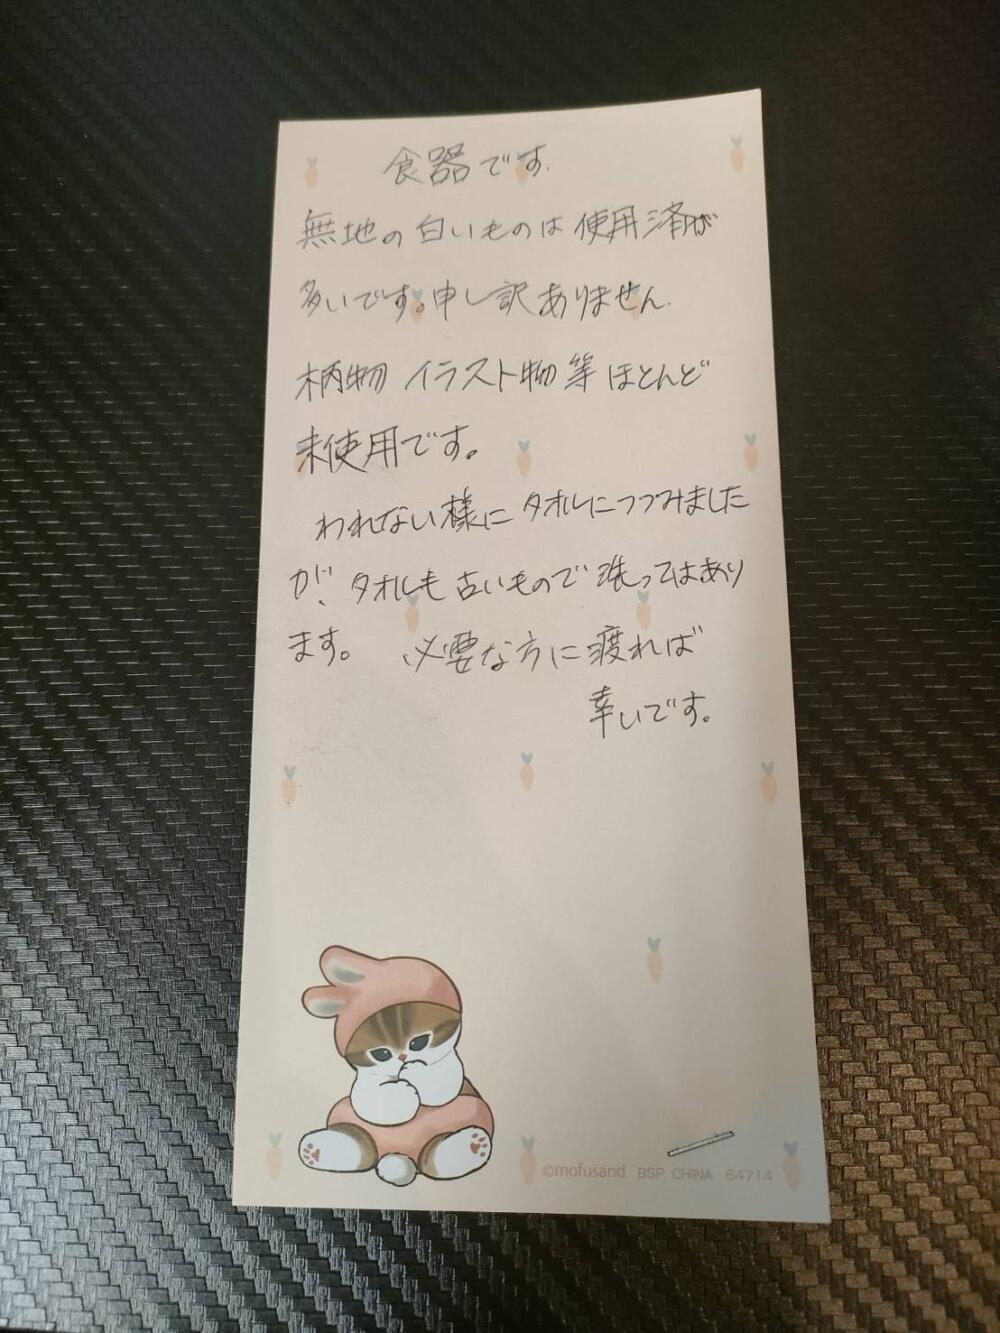 食器です.
無地の白いものは使用済が
多いです。申し訳ありません.
柄物 イラスト物等ほとんど
未使用です。
われない様にタオルにつつみました
が、タオルも古いもので洗ってはあり
ます。 必要な方に渡れば
幸いです。
©mofusand BSP. CHINA 64714